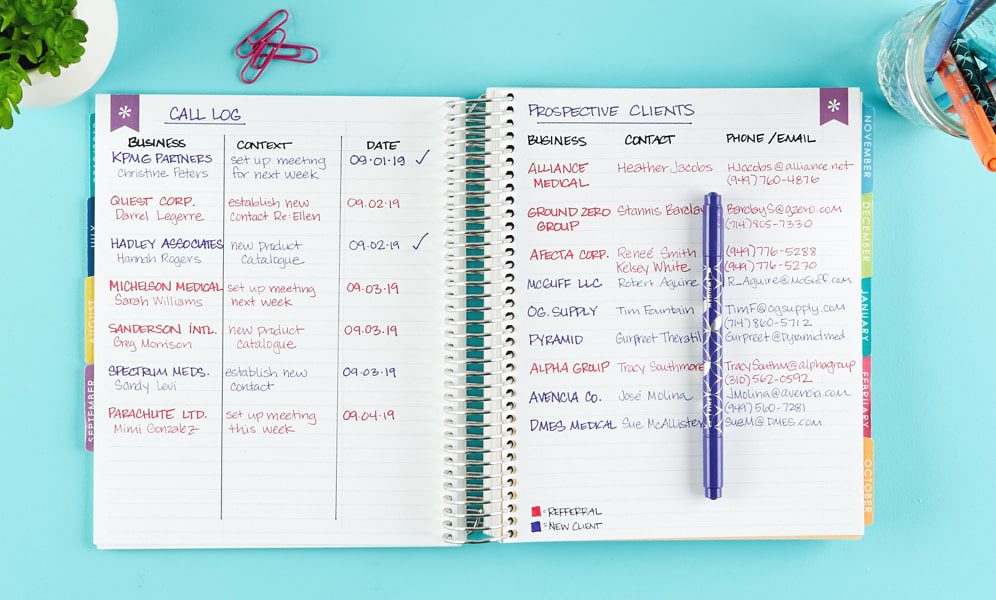 CALL LOG
BUSINESS CONTEXT DATE
KPMG PARTNERS set up meeting 09.01.19 ✓
Christine Peters for next week
QUEST CORP. establish new 09.02.19
Darrel Legerre contact Re: Ellen
HADLEY ASSOCIATES new product 09.02.19 ✓
Hannah Rogers catalogue
MICHELSON MEDICAL set up meeting 09.03.19
Sarah Williams next week
SANDERSON INTL. new product 09.03.19
Greg Morrison catalogue
SPECTRUM MEDS. establish new 09.03.19
Sandy Levi contact
PARACHUTE LTD. set up meeting 09.04.19
Mimi Gonzalez this week
JULY
AUGUST
SEPTEMBER
PROSPECTIVE CLIENTS
BUSINESS CONTACT PHONE / EMAIL
ALLIANCE Heather Jacobs HJacobs@alliance.net
MEDICAL (949) 760-4876
GROUND ZERO Stannis Barclay BarclayS@gzero.com
GROUP (714) 805-7330
AFECTA CORP. Reneé Smith (949) 776-5288
Kelsey White (949) 776-5270
MCGUFF LLC Robert Aquire R_Aquire@McGuff.com
OG. SUPPLY Tim Fountain TimF@ogsupply.com
(714) 860-5712
PYRAMID Gurpreet Gurpreet@Pyramidmed
ALPHA GROUP Tracy Southmore TracySouthm@alphagroup
(310) 562-0592
AVENCIA CO. José Molina JMolina@avencia.com
(949) 560-7281
DMES MEDICAL Sue McAllister SueM@DMES.com
= REFFERAL
= NEW CLIENT
NOVEMBER
DECEMBER
JANUARY
FEBRUARY
OCTOBER